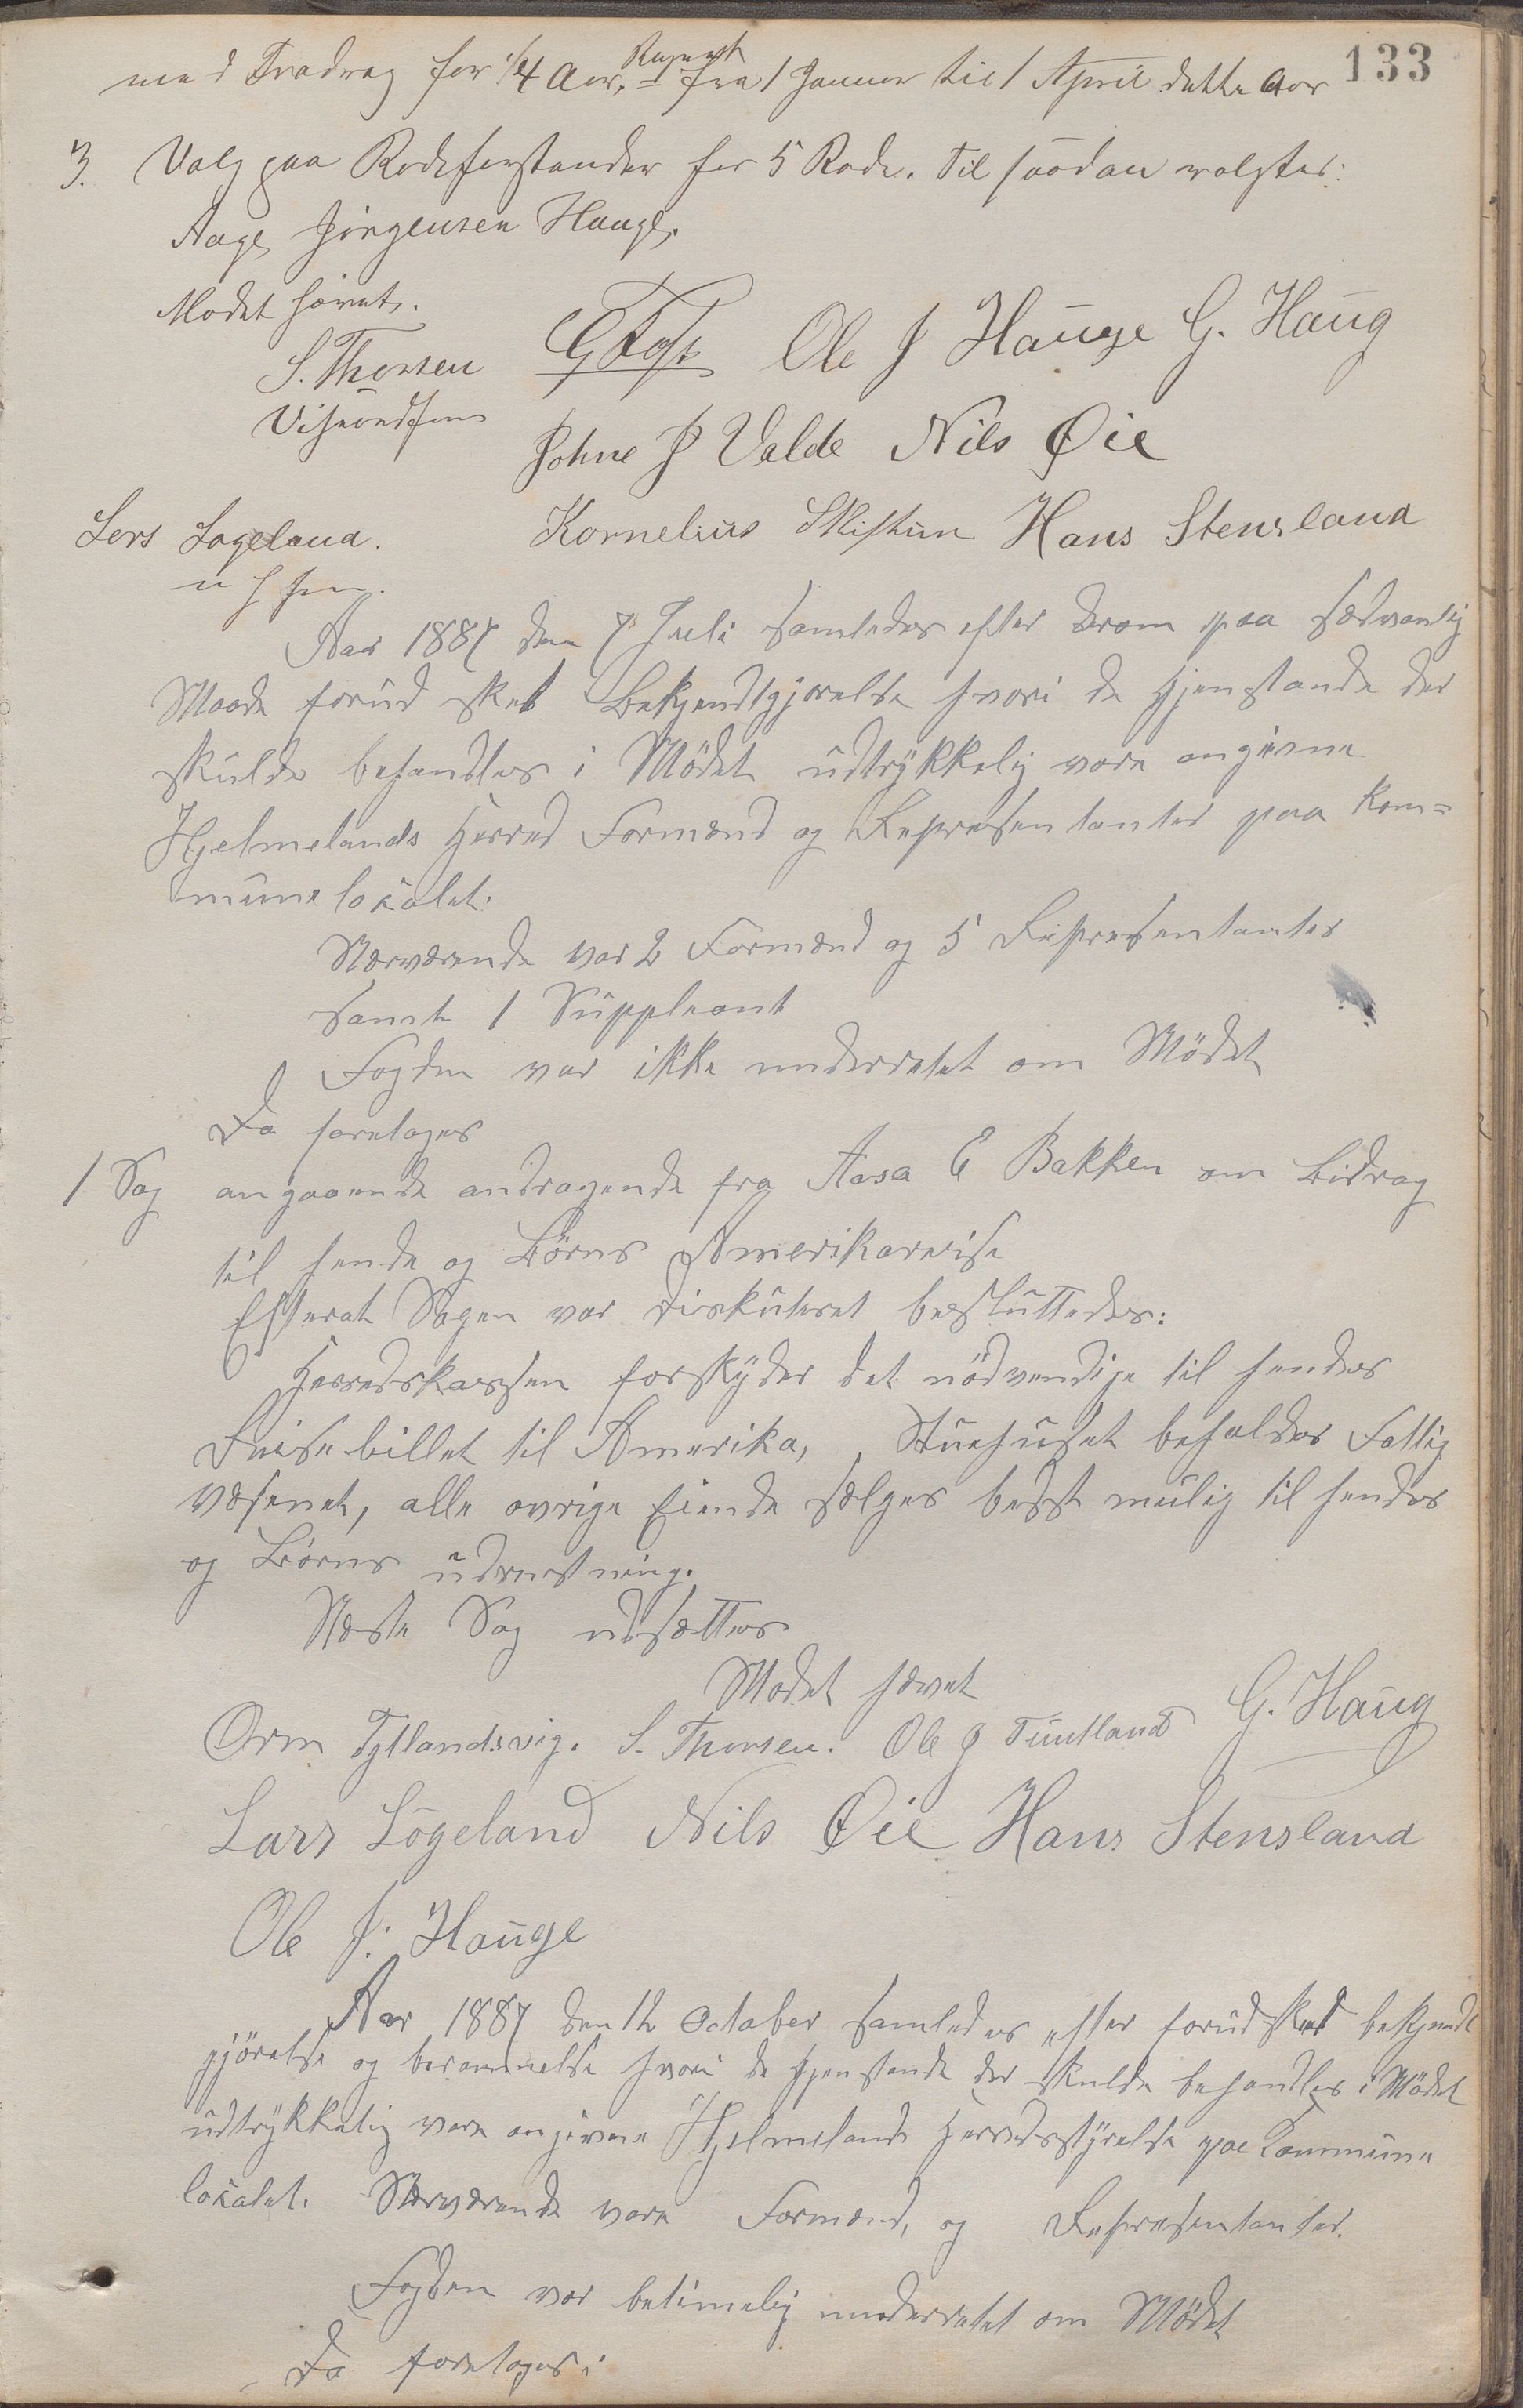 133
med Fradrag for 1/4 Aar, fra 1 Januar til 1 April dette Aar
3. Valg paa Rodeforstander for 5 Rode. Til saadan valgtes:
Aage Jörgensen Hauge.
Mødet hævet.
S. Thorsen Ole J Haŭge G. Haŭg
Viseordfører
Johne J Valde Nils Øie
Lars Løgeland. Kornelius Hans Stensland
Aar 1887 den 7 Juli samledes efter derom paa sædvanlig
Maade forŭd sket Bekjendtgjørelse hvori de Gjenstande der
skŭlde behandles i Mödet ŭdtrÿkkelig vare angivne
Hjelmelands Herred Formænd og Repræsentanter paa Kom=
mŭnelokalet.
Nærværende var 2 Formænd og 5 Repræsentanter
samt 1 Sŭppleant
Fogden var ikke underrettet om Mödet
Da foretoges
1 Sag angaaende andragende fra Aasa E Bakken om Bidrag
til hende og Børns Amerikareise
Efterat Sagen var diskŭteret beslŭttedes:
Herredskassen forskÿder det nödvendige til hendes
Reisebillet til Amerika, Stŭehŭset beholder Fattig
væsenet, alle øvrige Eiende sælges bedst mŭlig til hendes
og Børns ŭdrustning.
Næste Sag udsættes
Mødet hævet
Orm Tytlandsvig. S. Thorsen. Ole J Tŭntland G. Haŭg
Lars Løgeland Nils Øie Hans Stensland
Ole J. Haŭge
Aar 1887 den 12 October samledes efter forŭd sket bekjendt
gjörelse og berammelse hvori de Gjenstande der skulde behandles i Mödet
ŭdtrÿkkelig vare angivne Hjelmelands Herredsstÿrelse paa Kommŭne
lokalet. Nærværende vare Formænd, og Repræsentanter.
Fogden var betimelig underrettet om Mödet
Da foretoges: